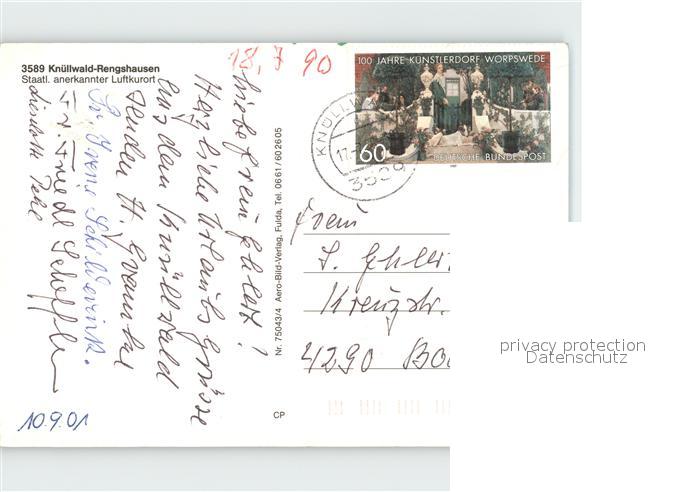 3589 Knüllwald-Rengshausen
Staatl. anerkannter Luftkurort
18,7 90
Liebe Frau Ehlert!
Herzliche Urlaubsgrüsse
aus dem Knüllwald
senden H.
Fr. Irene
Fr. Friedl Scheffler
Liselotte
10.9.01
Nr. 75043/4 Aero-Bild-Verlag, Fulda, Tel. 0661/602605
CP
100 JAHRE KÜNSTLERDORF WORPSWEDE
60
DEUTSCHE BUNDESPOST
KNÜLLW
17.
3589
Frau
Kreuzstr.
4290
privacy protection
Datenschutz